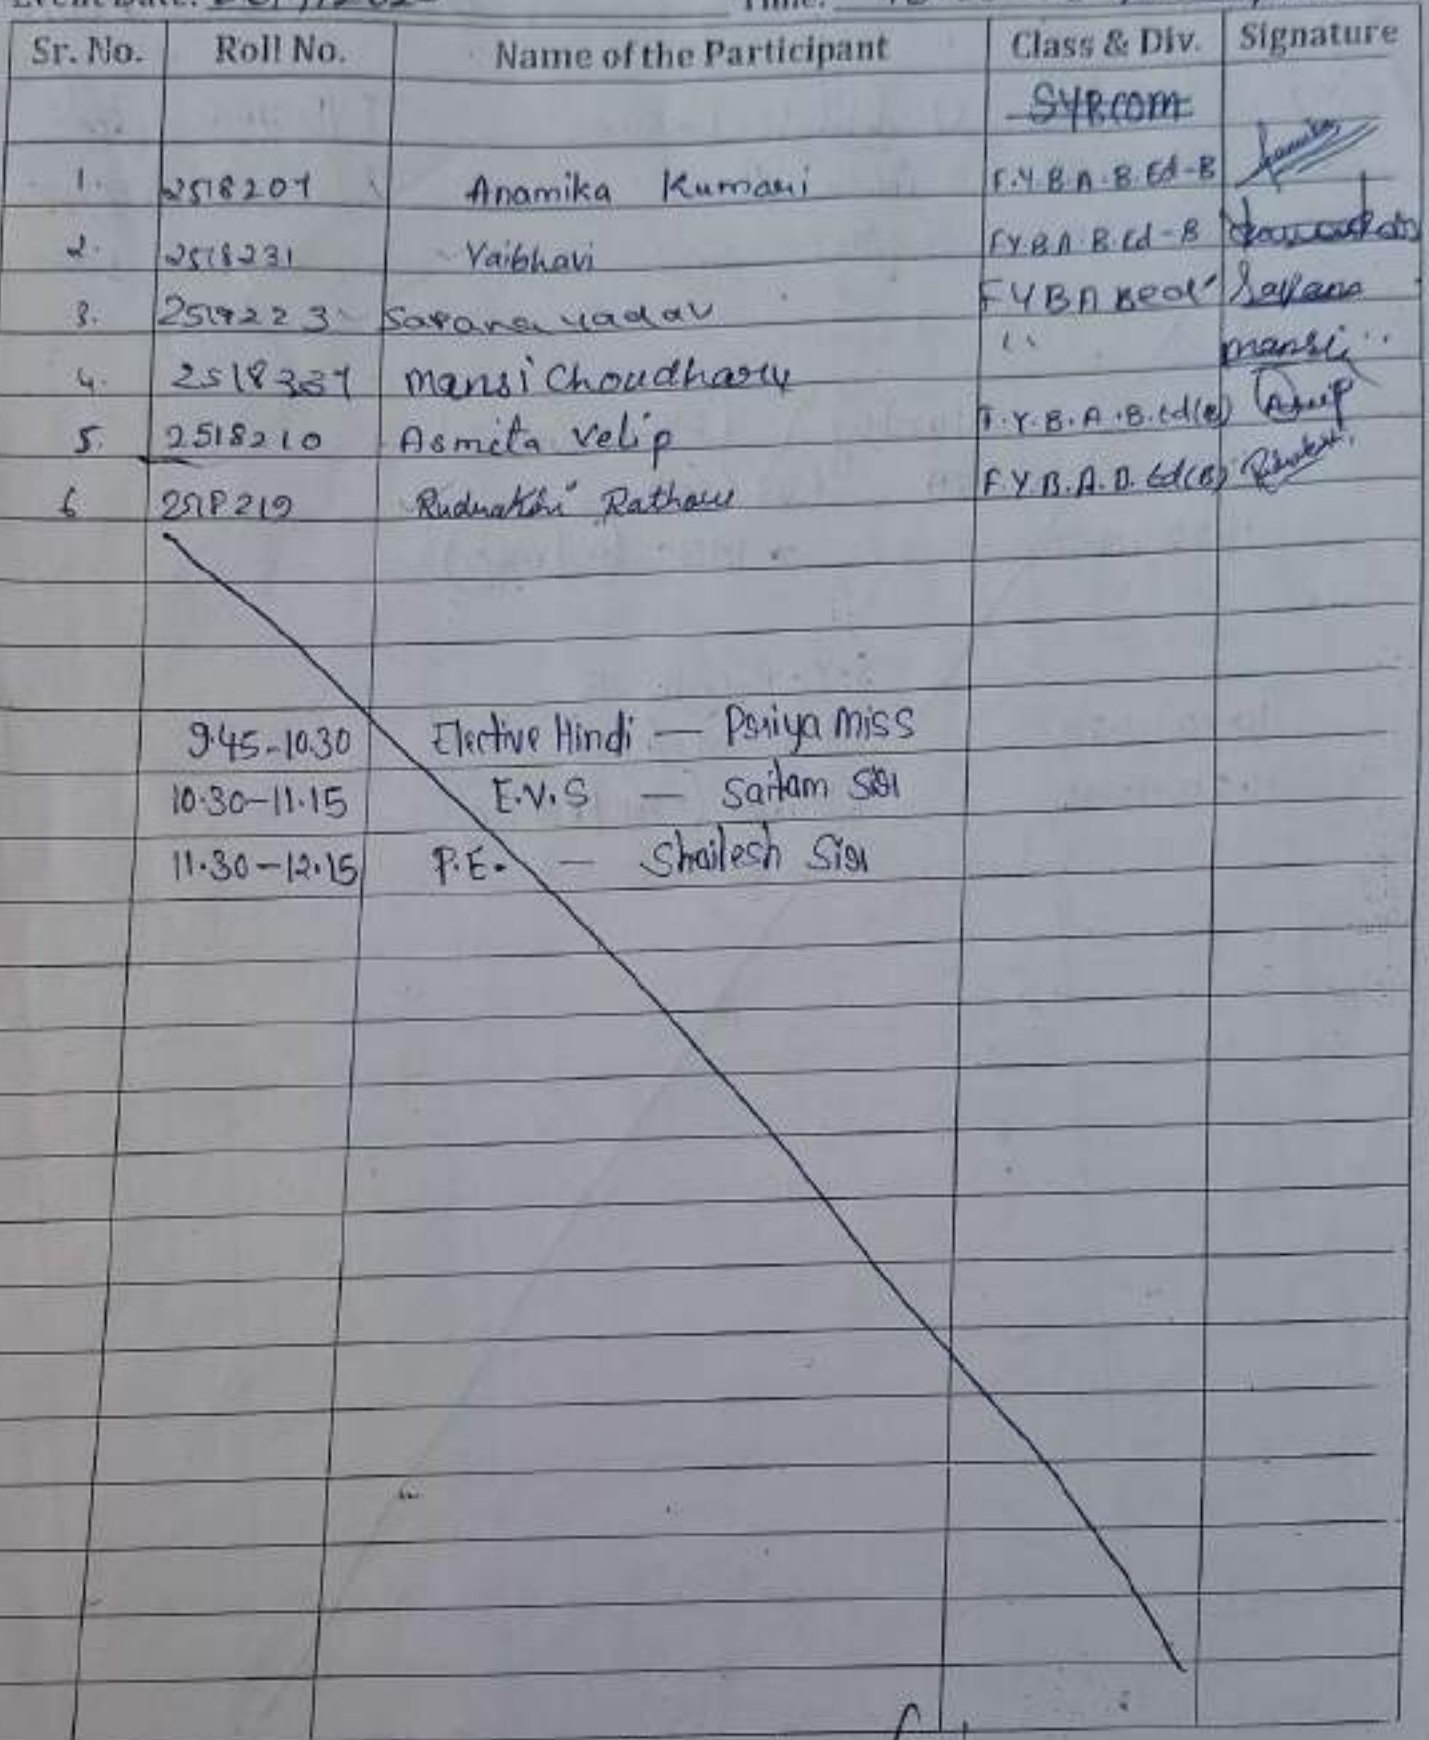 Event Date:
Time:
Sr. No. Roll No. Name of the Participant Class & Div. Signature
SYBCOM
1. 2518207 Anamika Kumari F.Y.B.A.B.Ed-B
2. 2518231 Vaibhavi F.Y.B.A.B.Ed-B
3. 2518223 Sapana yadav FYBA Bed Sapana
4. mansi Choudhary " mansi
5. 2518210 Asmita Velip F.Y.B.A.B.Ed(B)
6 2518219 Rudrakshi Rathour F.Y.B.A.B.Ed(B)
9.45-10.30 Elective Hindi — Priya miss
10.30-11.15 E.V.S — Sairam Sir
11.30-12.15 P.E. — Shailesh Sir